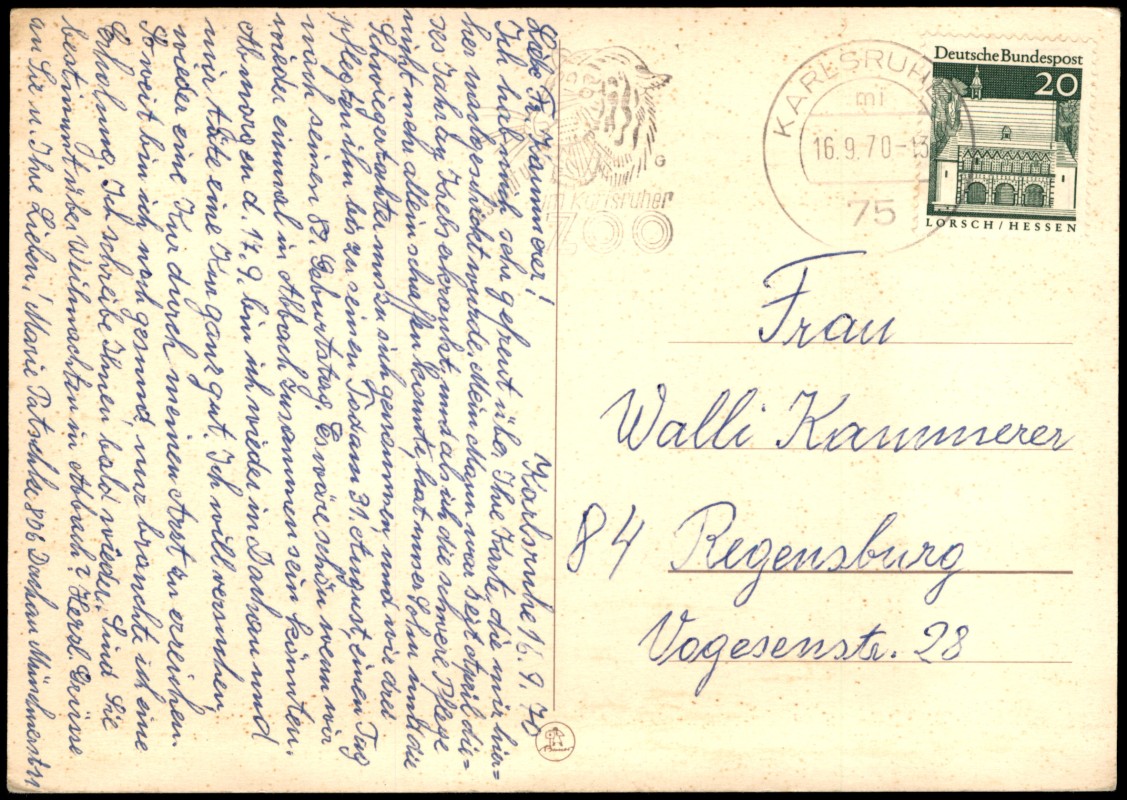 Karlsruhe 16. 9. 70
Liebe Fr. Kammerer!
Ich hab mich sehr gefreut über Ihre Karte, die mir hier=
her nachgeschickt wurde. Mein Mann war seit April die=
ses Jahr by Krebs erkrankt, und als ich die schwere Pflege
nicht mehr allein schaffen konnte, hat unser Sohn und die
Schwiegertochter uns zu sich genommen und wir drei
pflegten ihn bis zu seinem Tod am 31. August, einen Tag
nach seinem 89. Geburtstag. Es wäre schön, wenn wir
wieder einmal in Abbach zusammen sein könnten.
Ab morgen d. 17. 9. bin ich wieder in Dachau und
mir täte eine Kur ganz gut. Ich will versuchen,
wieder eine Kur durch meinen Arzt zu erreichen.
Soweit bin ich noch gesund, nur brauchte ich eine
Erholung. Ich schreibe Ihnen bald wieder. Sind Sie
bestimmt über Weihnachten in Abbach? Herzl. Grüsse
an Sie u. Ihre Lieben! Marie Patschke 806 Dachau Münchnerstr
im Karlsruher
ZOO
G
KARLSRUHE
mi
16.9.70-13
75
Deutsche Bundespost
20
LORSCH/HESSEN
Frau
Walli Kammerer
84 Regensburg
Vogesenstr. 28